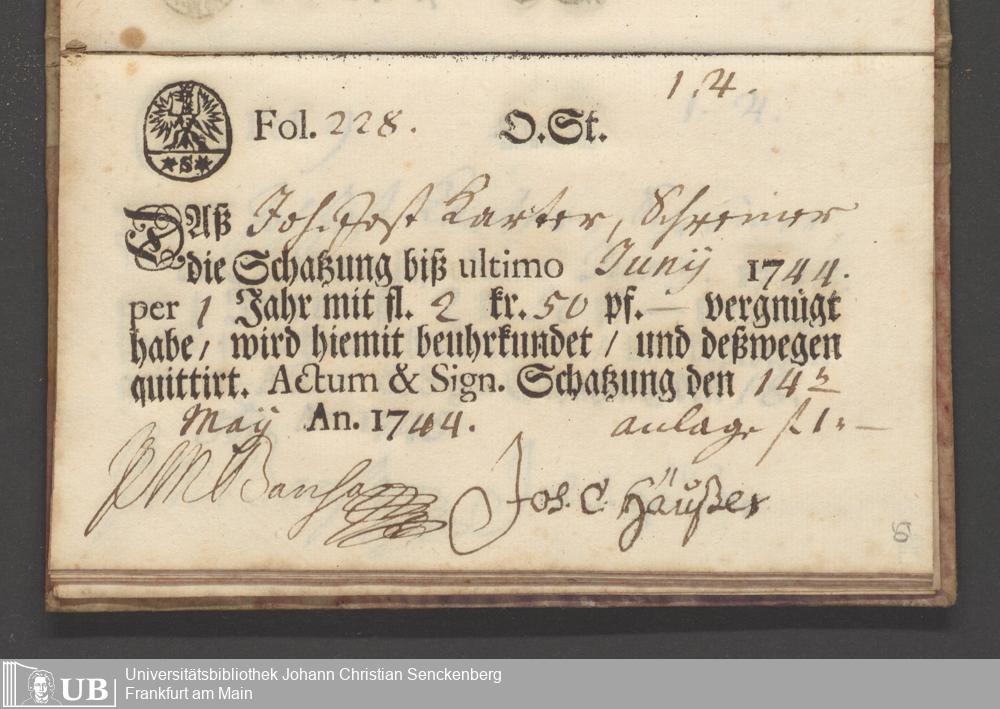 1.4.
Fol. 228. O.St.
*S*
Daß Joh. Jost Karter, Schreiner
die Schatzung biß ultimo Juny 1744.
per 1 Jahr mit fl. 2 kr. 50 pf. — vergnügt
habe / wird hiemit beuhrkundet / und deßwegen
quittirt. Actum & Sign. Schatzung den 142
May An. 1744. anlage f 1 " —
Joh. C. Häußer
6
UB Universitätsbibliothek Johann Christian Senckenberg
Frankfurt am Main